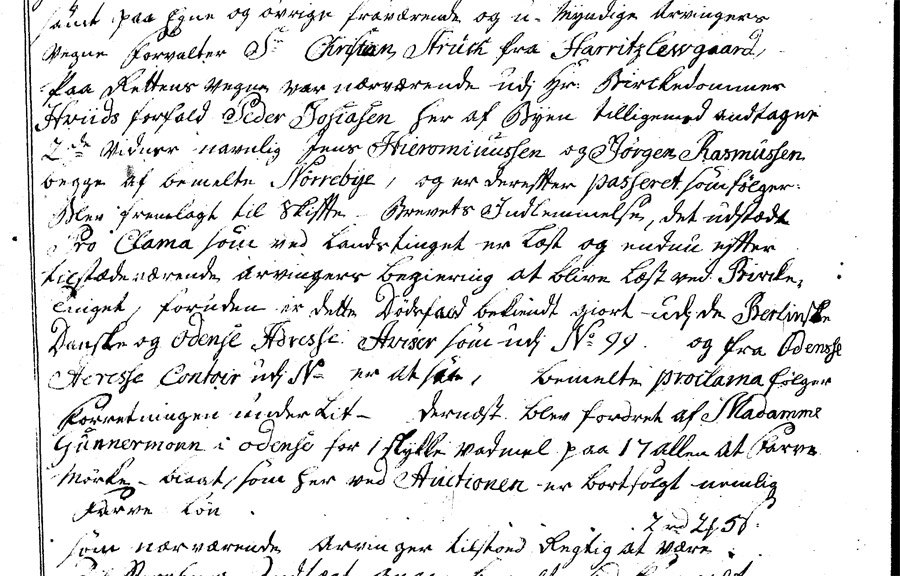 samt paa Egne og øvrige fraværende og u-Myndige Arvingers
vegne Forvalter Sr Christian Struck fra Harritzlewgaard,
Paa Rettens vegne var nærværende udj Hr. Birckedommer
Hviids forfald Peder Josiasen her af Byen tilligemed andtagne
2de Vidner navnlig Jens Hieronimussen og Jørgen Rasmussen
begge af bemelte Nørrebye, og er derefter passeret somfølger:
Blev fremlagt til Skifte-Brevets Indlemmelse, det udstædt
Pro Clama som ved Landstinget er Læst og endnu efter
tilstædeværende Arvingers begiering at blive Læst ved Bircke-
Tinget, foruden er dette Dødsfald bekiendt giort udj de Berlinske
Danske og Odense Adresse Aviser som udj No 99. og fra Odensse
Adresse Contoir udj No er at see, bemelte proclama følger
Forretningen under Lit- dernæst blev fordret af Madamme
Gunnermann i Odense for 1 stykke vadmel paa 17 allen at Farve
Mørke-blaat, som her ved Auctionen er bortsolgt nemlig
Farve Løn
2 rd 2 5
som nærværende Arvinger tilstoed Regtig at være.